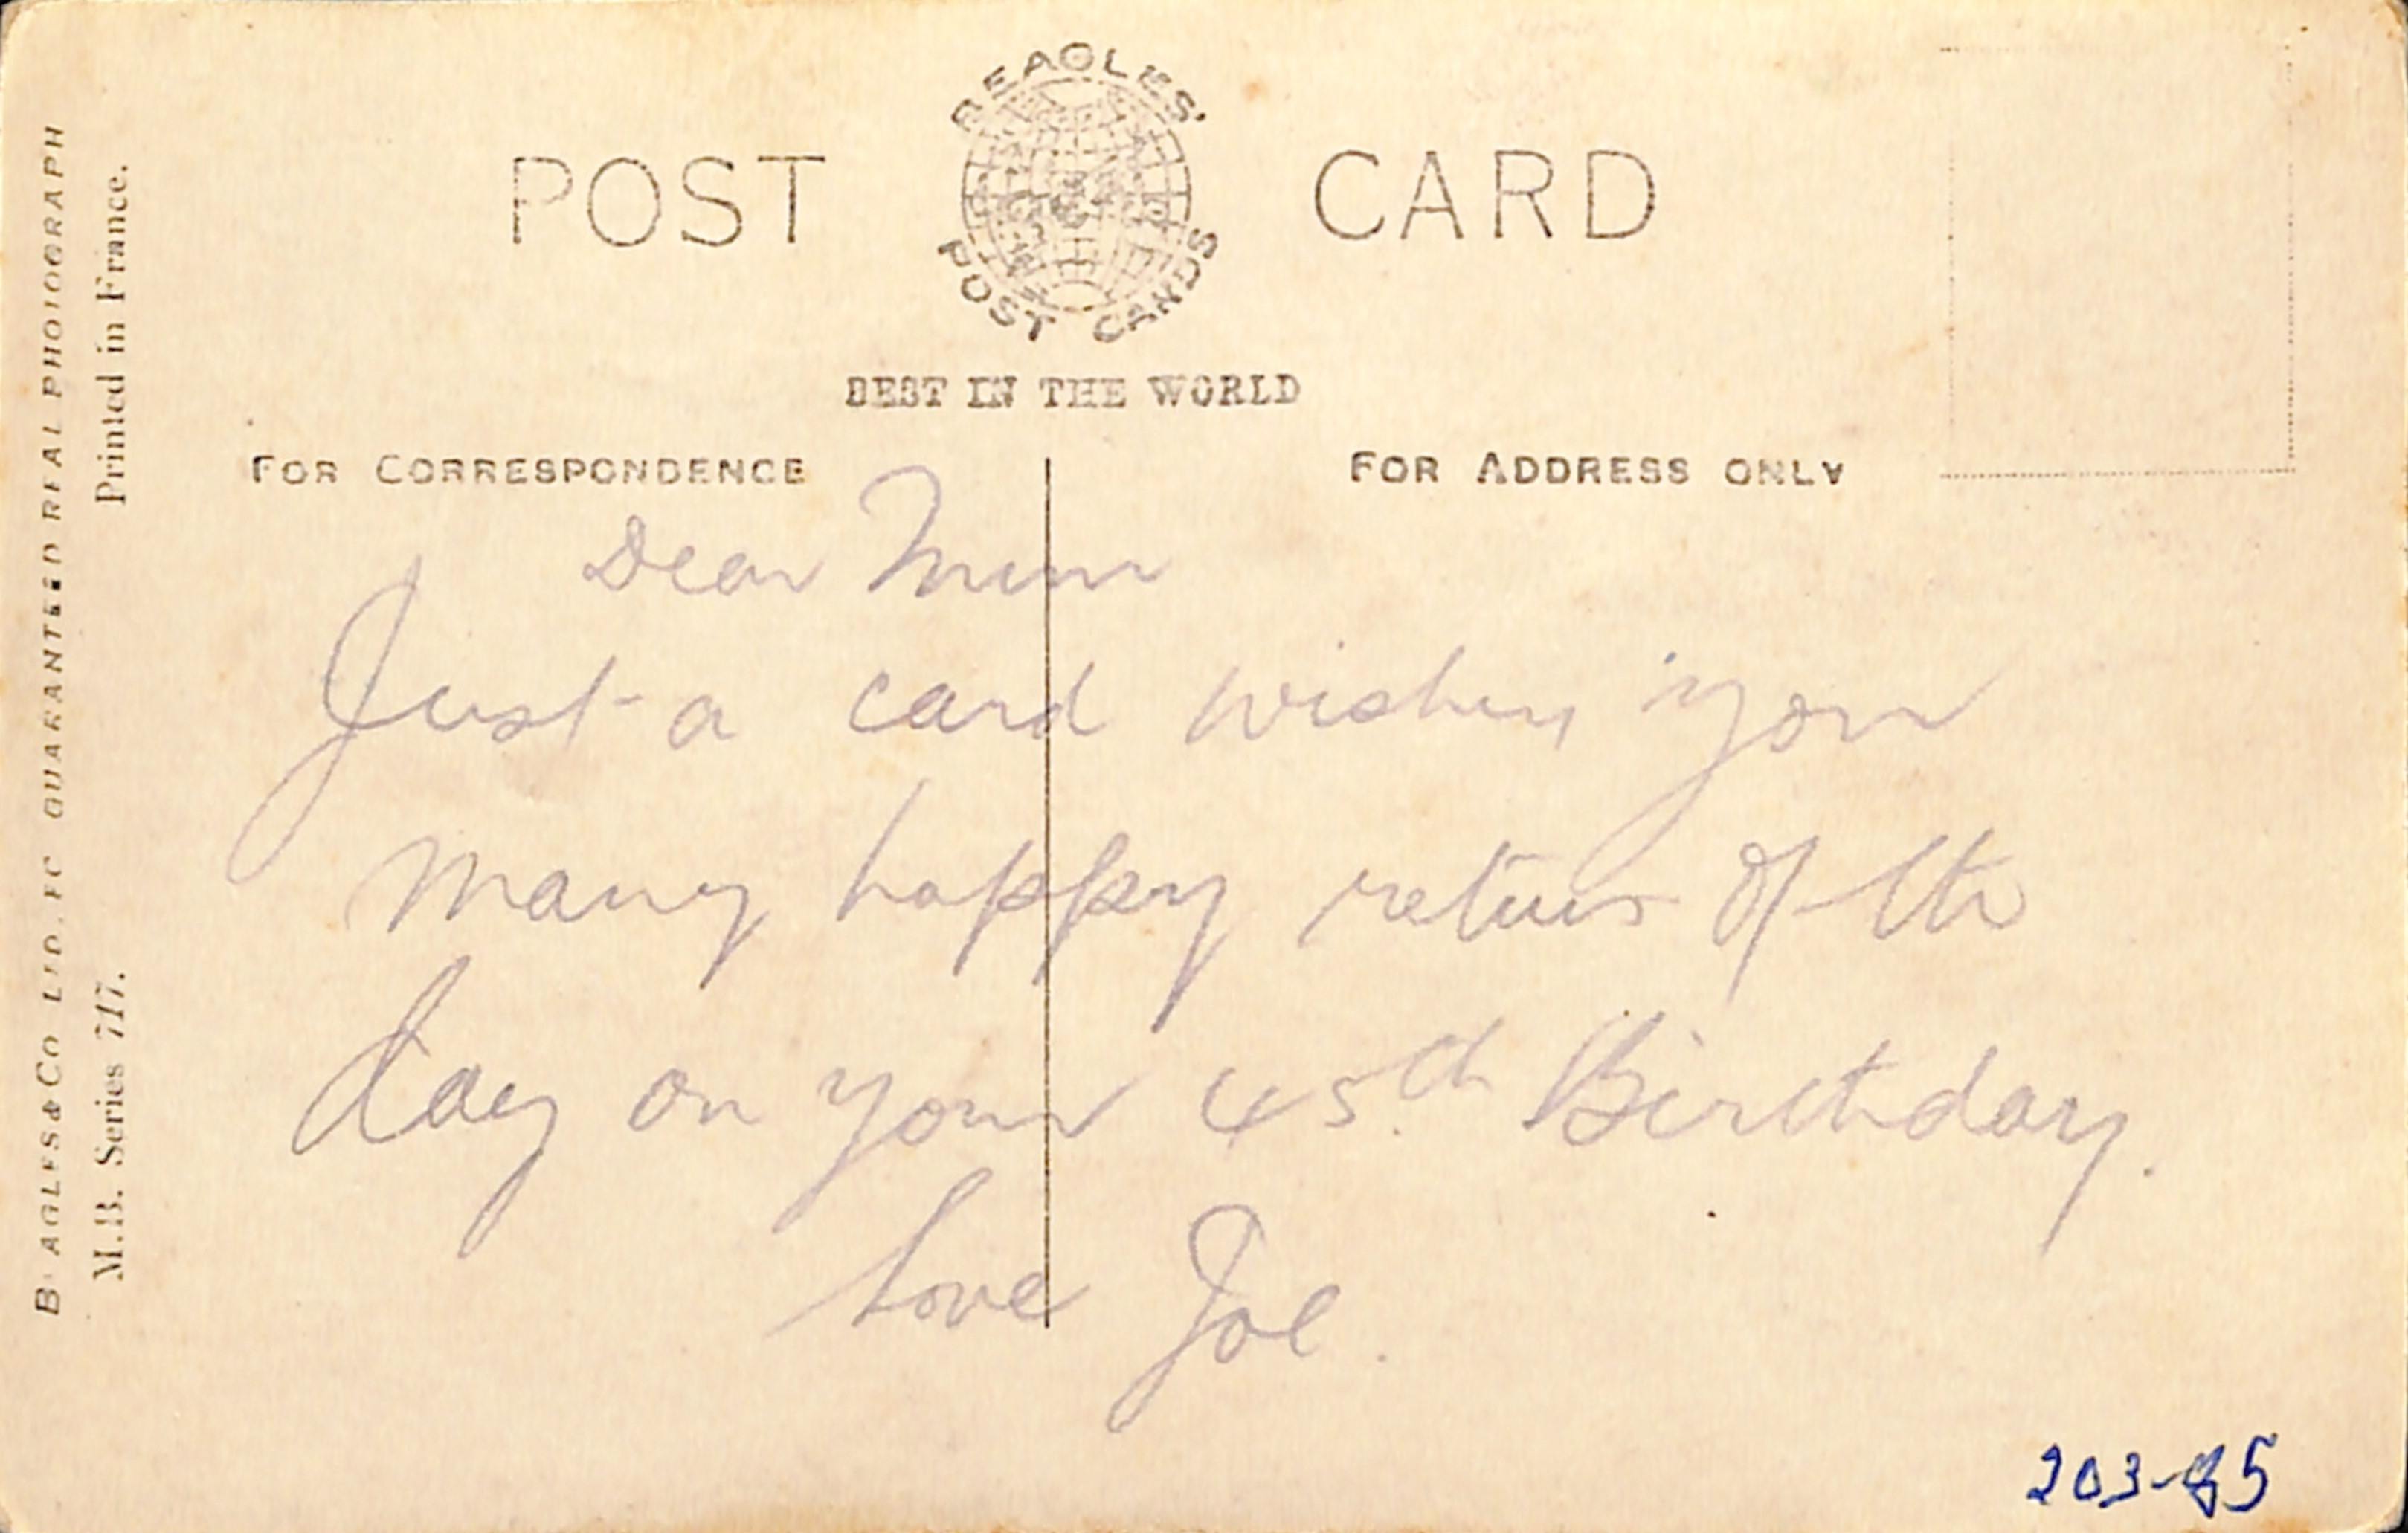 BEAGLES'
POST CARD
POST CARDS
BEST IN THE WORLD
FOR CORRESPONDENCE
FOR ADDRESS ONLY
Dear Mum
Just a card wishing you
Many happy returs of the
day on your 45th Birthday.
Love Joe.
203-85
BEAGLES & CO LTD. EC GUARANTEED REAL PHOTOGRAPH
M.B. Series 717. Printed in France.